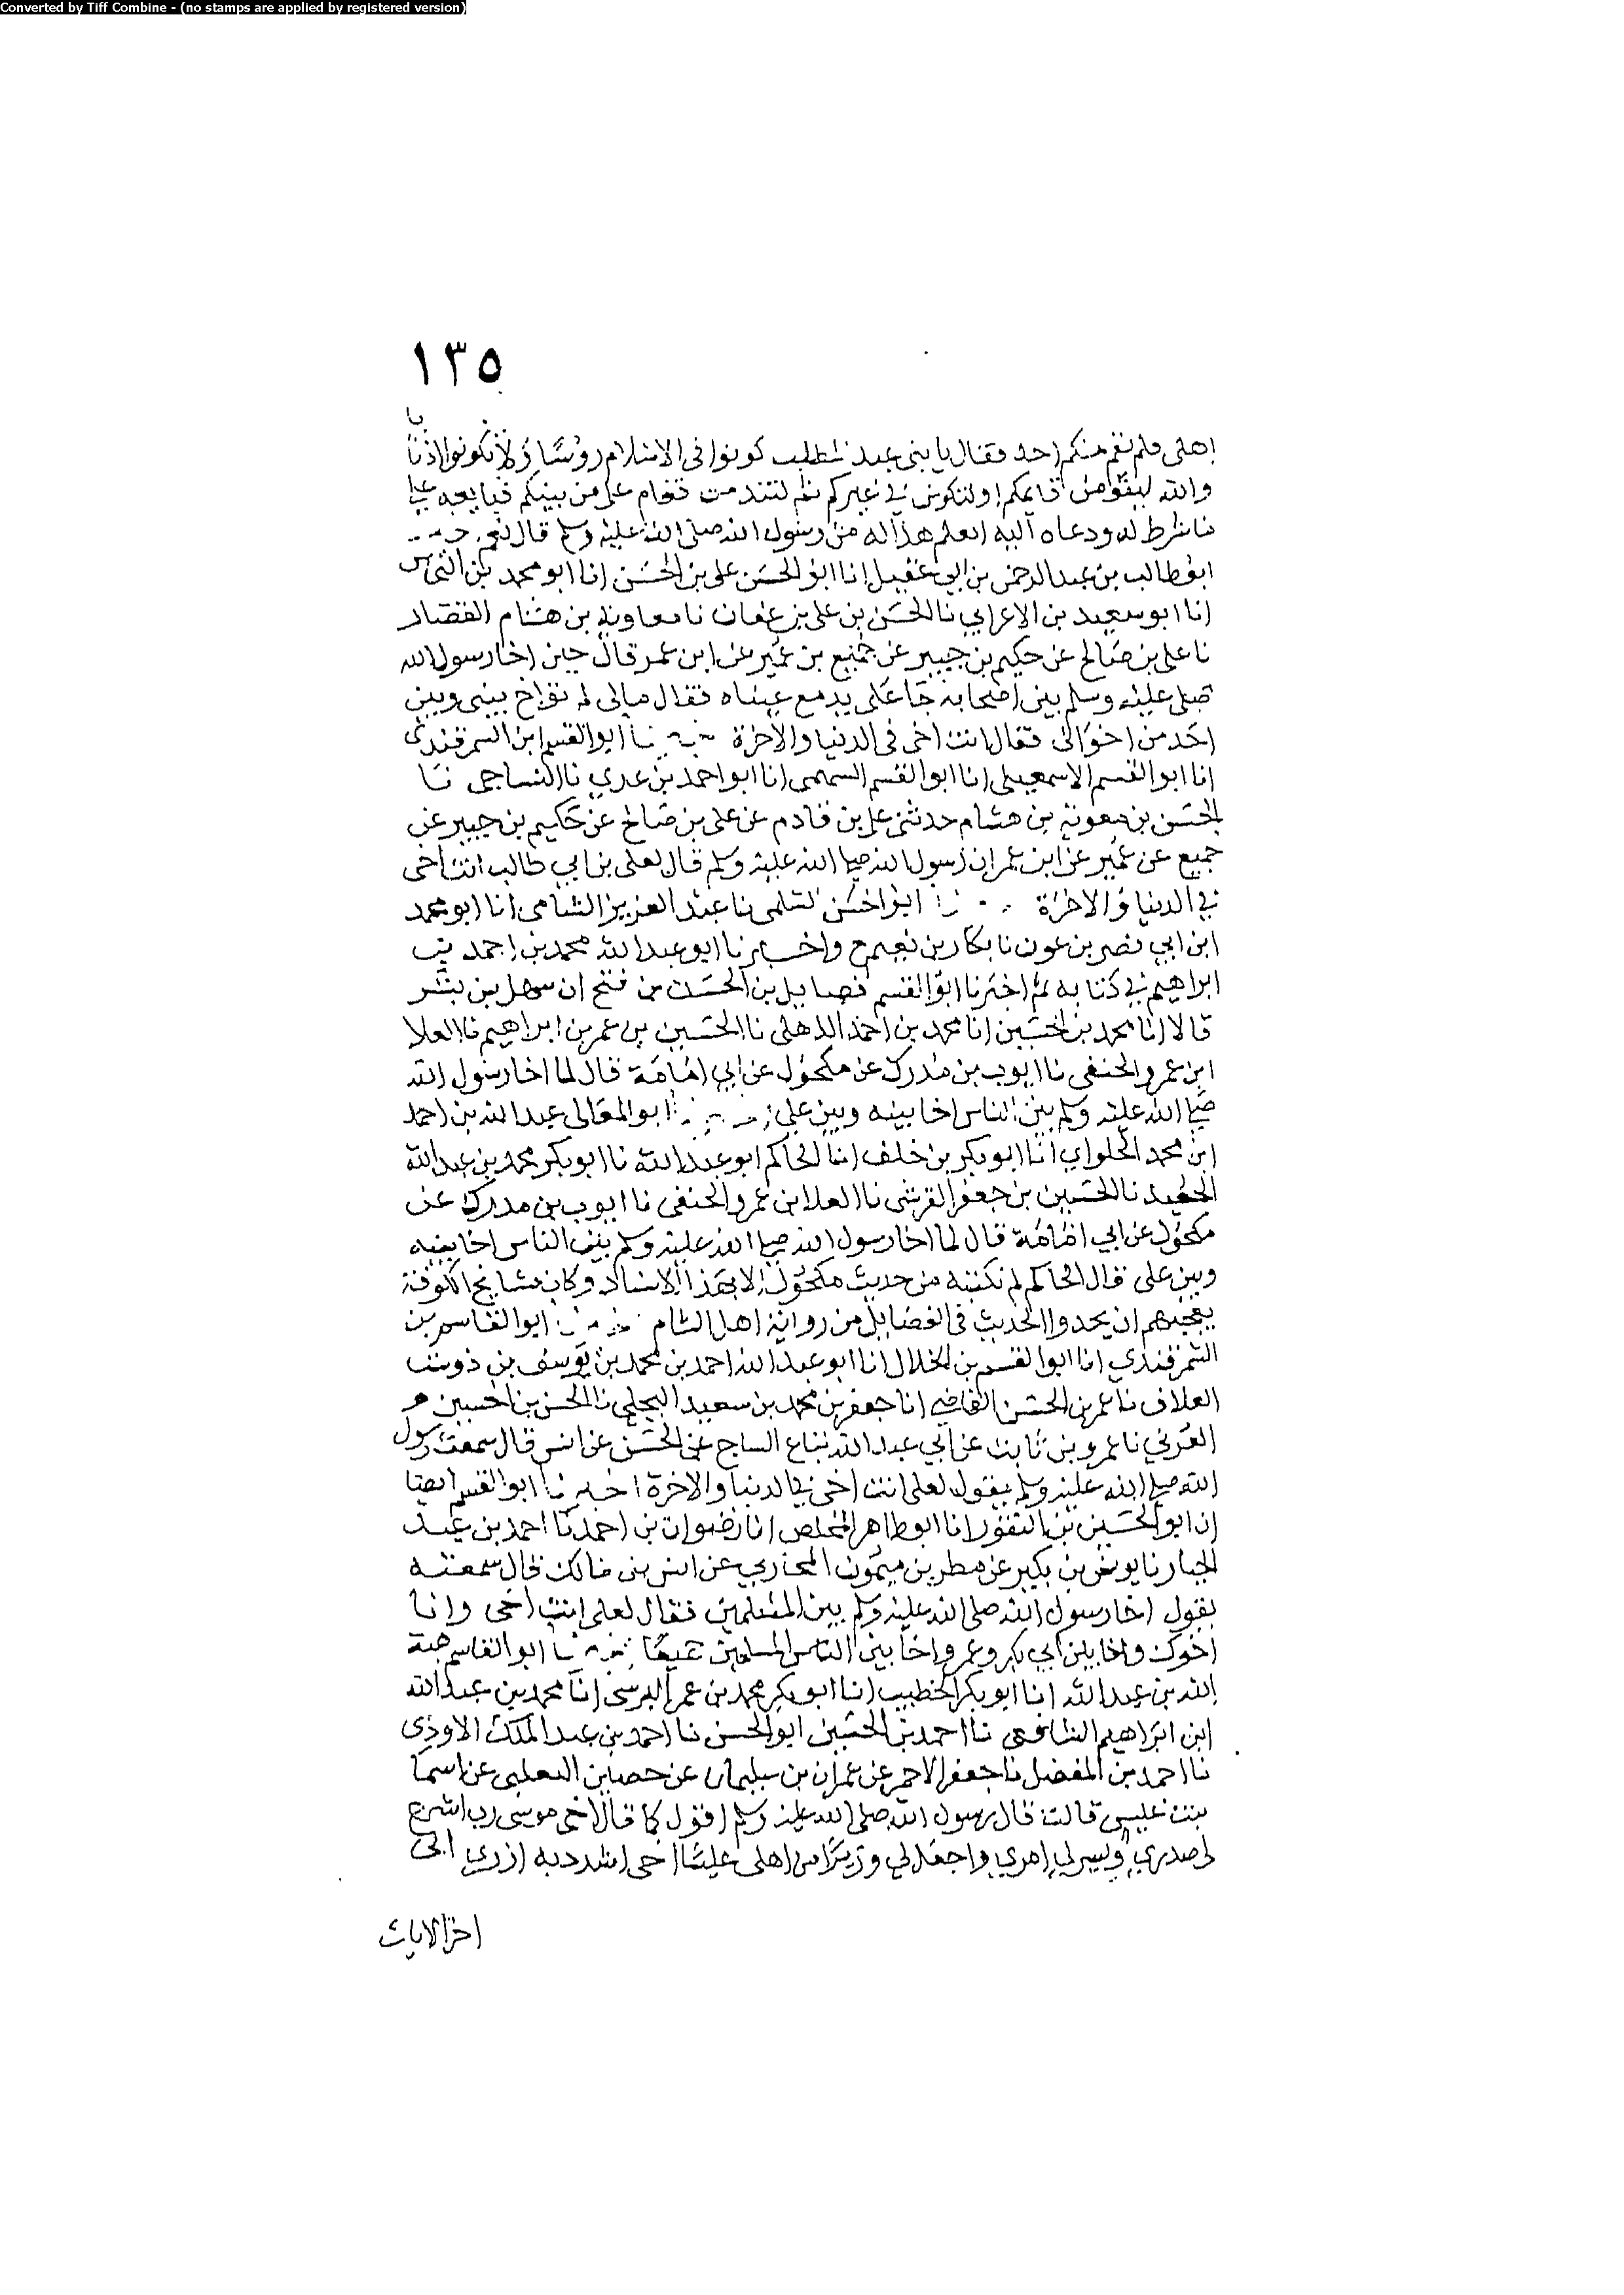 Converted by Tiff Combine - (no stamps are applied by registered version)
١٣٥
اهلى فلم يقم منكم احد فقال يا بنى عبد المطلب كونوا فى الاسلام روسا ولا تكونوا اذنابا
والله ليقومن قايمكم او لتكونن في غيركم ثم لتندمن فقام على من بينكم فبايعه على
ما شرط له ودعاه اليه اتعلم هذا له من رسول الله صلى الله عليه وسلم قال نعم
ابو طالب بن عبد الرحمن بن ابي عقيل انا ابو الحسن على بن الحسن انا ابو محمد بن النحاس
انا ابو سعيد بن الاعرابي نا الحسن بن على بن عفان نا معاوية بن هشام القصار
نا على بن صالح عن حكيم بن جبير عن جميع بن عمير عن ابن عمر قال حين اخا رسول الله
صلى عليه وسلم بين اصحابه جا على يدمع عيناه فقال مالى لم تواخ بينى وبين
احد من اخوانى فقال انت اخى فى الدنيا والاخرة ابو القسم ابن السمرقندى
انا ابو القسم الاسمعيلى انا ابو القسم السهمى انا ابو احمد بن عدي نا الساجى نا
الحسن بن معوية بن هشام حدثنى على بن قادم عن على بن صالح عن حكيم بن جبير عن
جميع عن عمير عن ابن عمر ان رسول الله صلى الله عليه وسلم قال لعلى بن ابي طالب انت اخى
في الدنيا والاخرة ابو الحسن السلمى نا عبد العزيز الشامى انا ابو محمد
ابن ابي نصر بن عون نا بكار بن نعيم ح واخبرنا ابو عبد الله محمد بن احمد بن
ابراهيم في كتابه ثم اخبرنا ابو القسم فضايل بن الحسن بن فتح ان سهل بن بشر
قالا انا محمد بن الحسين انا محمد بن احمد الذهلى نا الحسين بن عمر بن ابراهيم نا العلا
ابن عمرو الحنفى نا ايوب بن مدرك عن مكحول عن ابي امامة قال لما اخا رسول الله
صلى الله عليه وسلم بين الناس اخا بينه وبين على ابو المعالى عبد الله بن احمد
ابن محمد الحلواي انا ابو بكر بن خلف انا الحاكم ابو عبد الله نا ابو بكر محمد بن عبد الله
الحفيد نا الحسين بن جعفر القرشى نا العلا بن عمرو الحنفى نا ايوب بن مدرك عن
مكحول عن ابي امامة قال لما اخا رسول الله صلى الله عليه وسلم بين الناس اخا بينه
وبين على قال الحاكم لم نكتبه من حديث مكحول الا بهذا الاسناد وكان مشايخ الكوفة
يعجبهم ان يجدوا الحديث فى الفضايل من رواية اهل الشام ابو القاسم بن
السمرقندي انا ابو القسم بن الخلال انا ابو عبد الله احمد بن محمد بن يوسف بن دوست
العلاف نا عمر بن الحسن القاضي انا جعفر بن محمد بن سعيد البجلي نا الحسن بن الحسين
العرني نا عمرو بن ثابت عن ابي عبد الله بياع الساج عن الحسن عن انس قال سمعت رسول
الله صلى الله عليه وسلم يقول لعلى انت اخى في الدنيا والاخرة اخبرنا ابو القسم ايضا
ان ابو الحسين بن النقور انا ابو طاهر المخلص انا رضوان بن احمد نا احمد بن عبد
الجبار نا يونس بن بكير عن مطر بن ميمون المحاربي عن انس بن مالك قال سمعته
يقول اخا رسول الله صلى الله عليه وسلم بين المسلمين فقال لعلى انت اخى وانا
اخوك واخا بين ابي بكر وعمر واخا بين الناس المسلمين جميعا ابو القاسم هبة
الله بن عبد الله انا ابو بكر الخطيب انا ابو بكر محمد بن عمر البرسى انا محمد بن عبد الله
ابن ابراهيم الشافعى نا احمد بن الحسين ابو الحسن نا احمد بن عبد الملك الاودى
نا احمد بن المفضل نا جعفر الاحمر عن عمران بن سليمان عن حصين الثعلبى عن اسما
بنت عميس قالت قال رسول الله صلى الله عليه وسلم اقول كما قال اخى موسى رب اشرح
لى صدري ويسر لي امري واجعل لي وزيرا من اهلى عليا اخى اشدد به ازري الى
اخر الايات